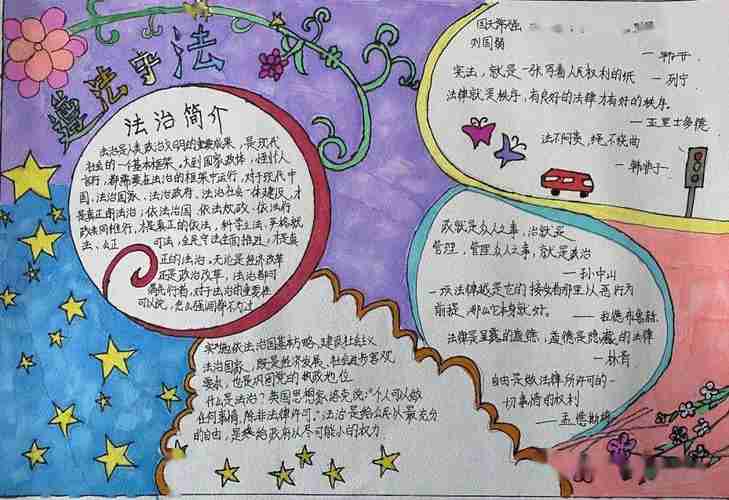 遵法守法
法治简介
法治是人类政治文明的重要成果，是现代
社会的一个基本框架。大到国家政体，
言行，都需要在法治的框架中运行，对于现代中
国，法治国家、法治政府、法治社会一体建设，才
是真正的法治；依法治国、依法执政、依法行
政共同推行，才是真正的依法；科学立法、严格执
法、公正司法，全民守法全面推进，才是真
正的法治。无论是经济改革
还是政治改革，法治都可
先行者，对于法治的重要性
可以说，怎么强调都不为过
实施依法治国基本方略、建设社会主义
法治国家，既是经济发展、社会进步客观
要求，也是巩固党的执政地位
什么是法治？英国思想家洛克说：“个人可以做
任何事情，除非法律许可，”法治是给公民以最充分
的自由，是给政府以尽可能小的权力
国无常强
刘国弱
宪法，就是一张写着人民权利的纸
—列宁
法律就是秩序，有良好的法律才有好的秩序。
—亚里士多德
法不阿贵，绳不挠曲
—韩非子
政就是众人之事，治就是
管理，管理众人之事，就是政治
—孙中山
前提，那么它本身就好。
法律是显露的道德，道德是隐藏的法律
—林肯
自由是做法律所许可的一
切事情的权利
—孟德斯鸠